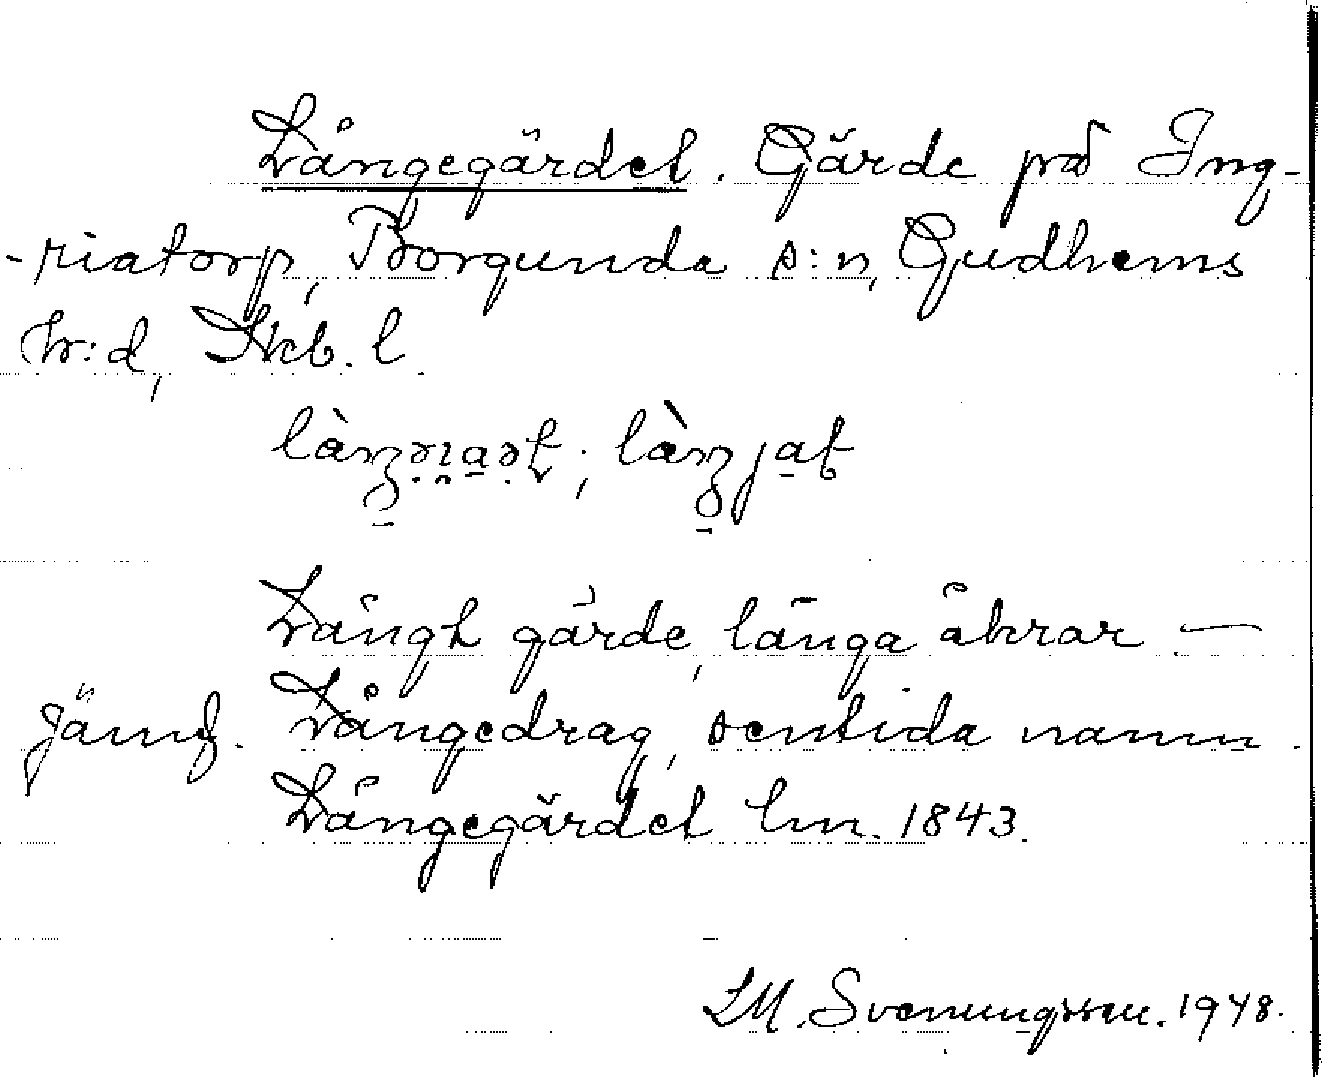 Långegärdet. Gärde på Ing-
-riatorp, Borgunda s:n, Gudhems
hr:d, Skb. l.
Långt gärde, långa åkrar —
jämf. Långedrag, sentida namn.
Långegärdet lm. 1843.
LM. Svenungsson. 1948.